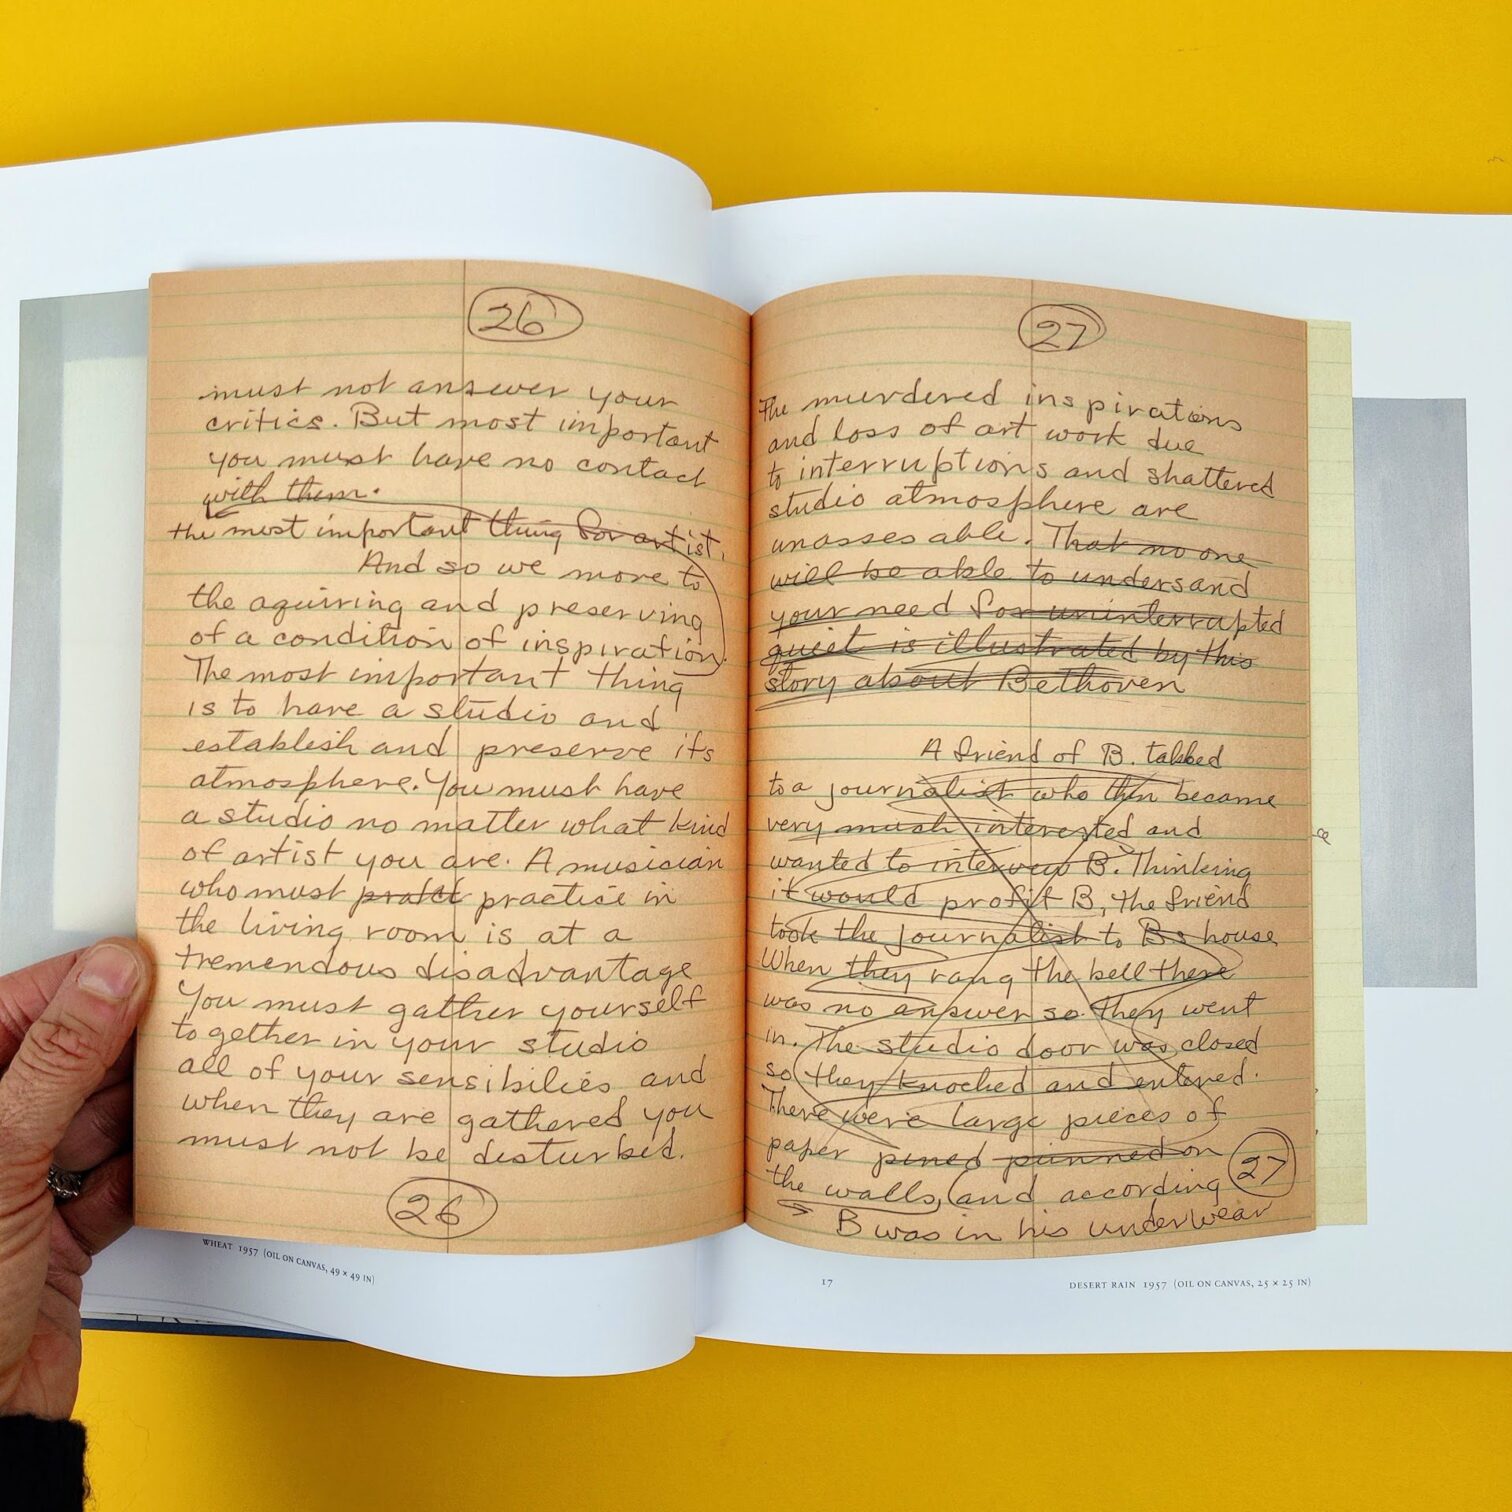 26
must not answer your
critics. But most important
you must have no contact
with them.
the most important thing for artist.
And so we move to
the aquiring and preserving
of a condition of inspiration.
The most important thing
is to have a studio and
establish and preserve its
atmosphere. You must have
a studio no matter what kind
of artist you are. A musician
who must practice in
the living room is at a
tremendous disadvantage
You must gather yourself
together in your studio
all of your sensibilies and
when they are gathered you
must not be disturbed.
26
WHEAT 1957 (OIL ON CANVAS, 49 × 49 IN)
27
The murdered inspirations
and loss of art work due
to interruptions and shattered
studio atmosphere are
unassesable. That no one
will be able to undersand
your need for uninterrupted
quiet is illustrated by this
story about Bethoven
A friend of B. talked
to a journalist who then became
very much interested and
wanted to interview B. Thinking
it would profit B, the friend
took the journalist to Bs house
When they rang the bell there
was no answer so they went
in. The studio door was closed
so they knocked and entered.
There were large pieces of
paper pined pinned on
the walls, and according
27
B was in his underwear
17
DESERT RAIN 1957 (OIL ON CANVAS, 25 × 25 IN)